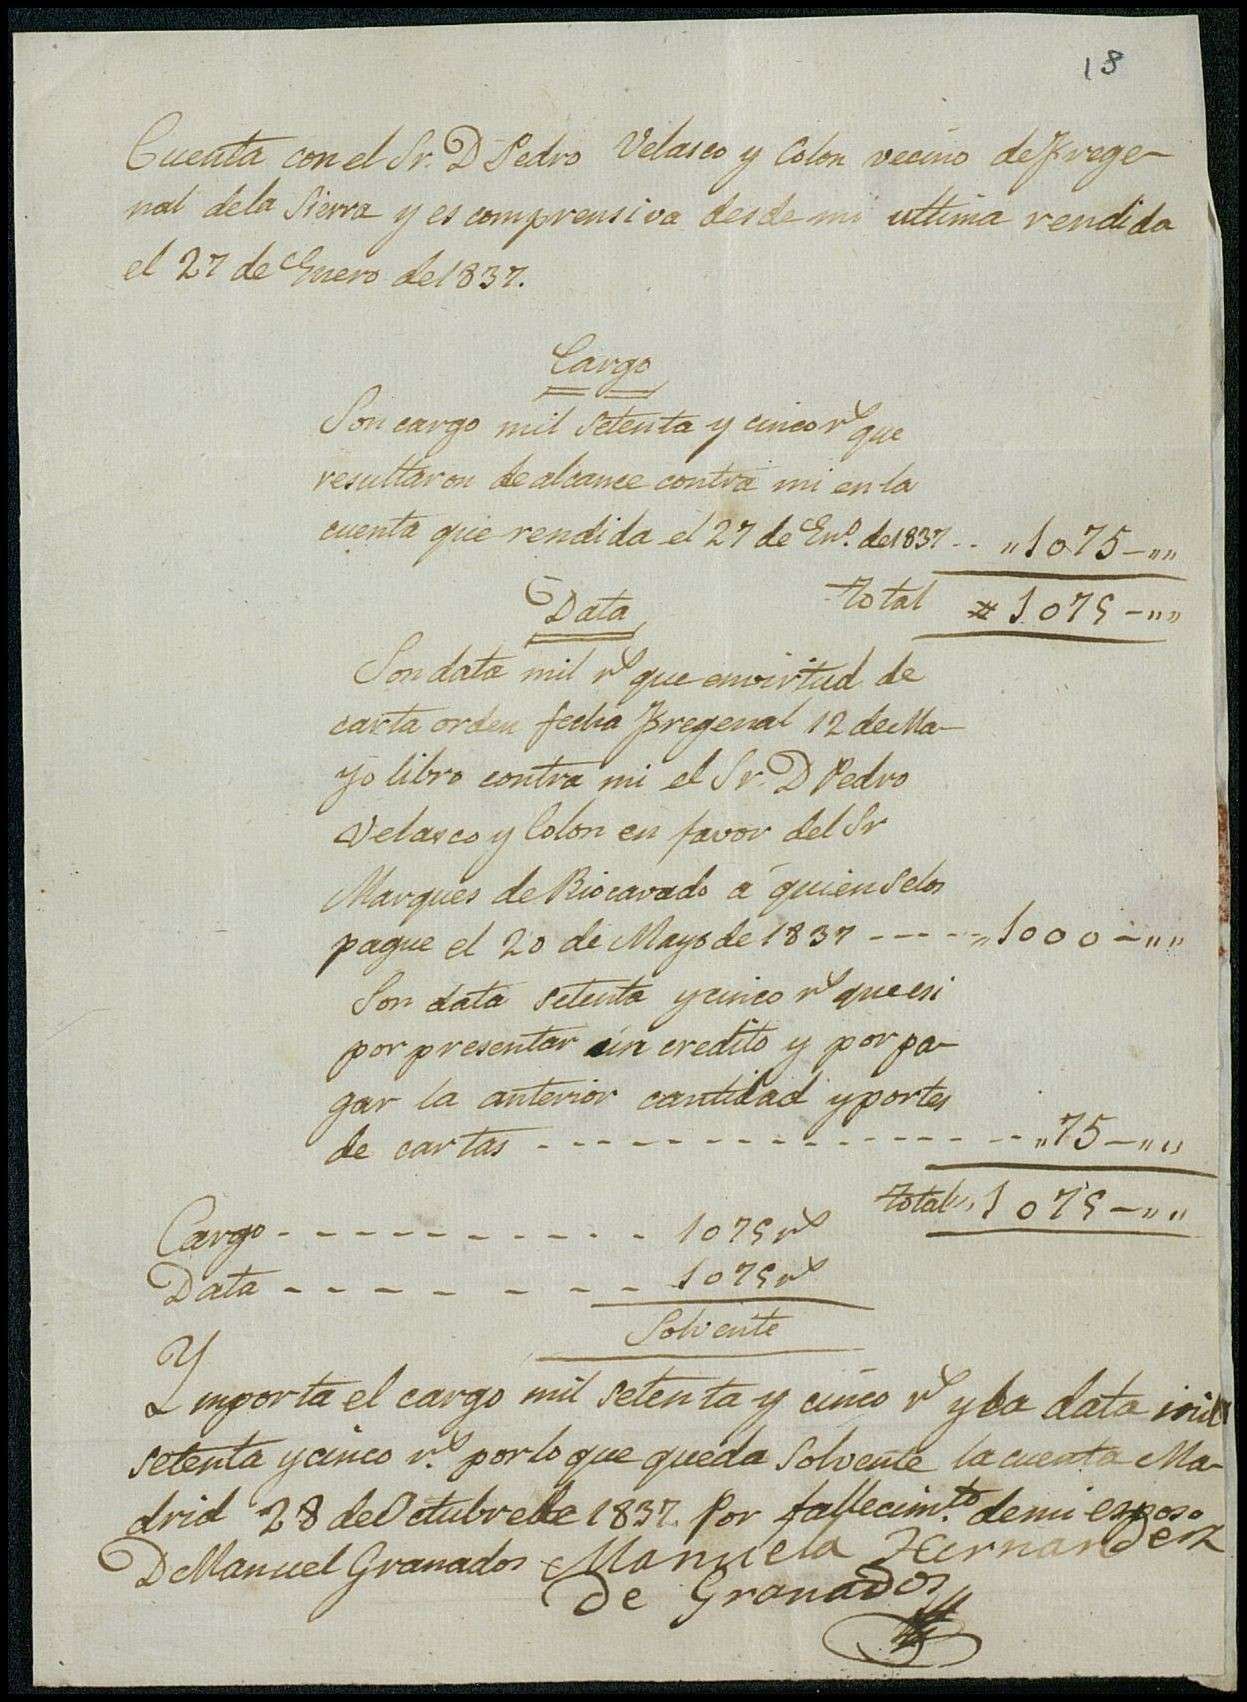 18
Cuenta con el Sr. D Pedro Velasco y Colon vecino de Frege-
nal dela Sierra y es comprensiva desde mi ultima rendida
el 27 de Enero de 1837.
Cargo
Son cargo mil setenta y cinco rs que
resultaron de alcance contra mi en la
cuenta que rendida el 27 de Eno. de 1837 -- „1075-„„
Total # 1075-„„
Data
Son data mil rs que envirtud de
carta orden fecha Fregenal 12 de Ma-
yo libro contra mi el Sr. D Pedro
Velasco y Colon en favor del Sr
Marques de Riocavado a quien selos
pague el 20 de Mayo de 1837 ----- „1000-„„
Son data setenta y cinco rs que
por presentar un credito y por pa-
gar la anterior cantidad y portes
de cartas ---------------- „75-„„
total „1075-„„
Cargo ----------- 1075 rs
Data -------- 1075 rs
Solvente
Y
Importa el cargo mil setenta y cinco rs y la data mil
setenta y cinco rs. por lo que queda solvente la cuenta Ma-
drid 28 de Octubre de 1837. Por fallecimto. de mi esposo
D Manuel Granados Manuela Hernandez
de Granados